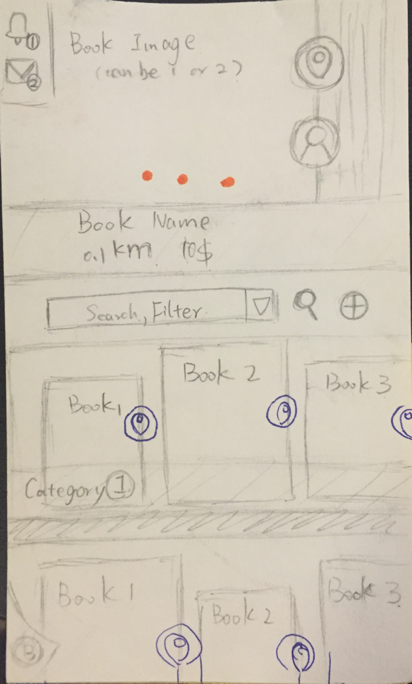 1
2
Book Image
(can be 1 or 2)
Book Name
0.1 km 10$
Search, Filter
Book 1
Book 2
Book 3
Category 1
Book 1
Book 2
Book 3